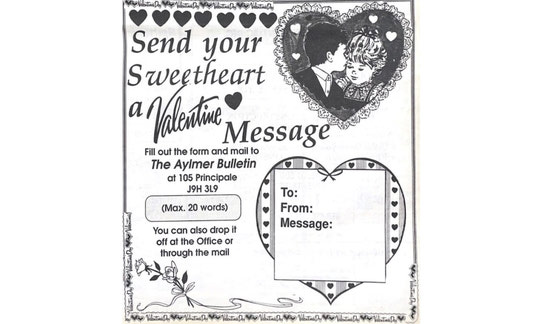 Send your
Sweetheart
a Valentine
Message
Fill out the form and mail to
The Aylmer Bulletin
at 105 Principale
J9H 3L9
(Max. 20 words)
You can also drop it
off at the Office or
through the mail
To:
From:
Message: